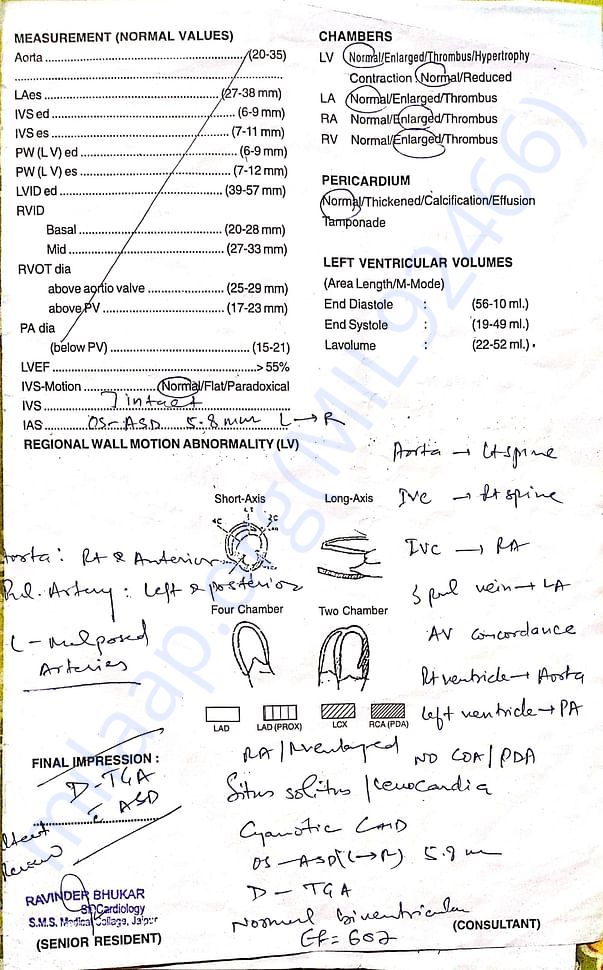 MEASUREMENT (NORMAL VALUES)
Aorta (20-35)
LAes (27-38 mm)
IVS ed (6-9 mm)
IVS es (7-11 mm)
PW (L V) ed (6-9 mm)
PW (L V) es (7-12 mm)
LVID ed (39-57 mm)
RVID
Basal (20-28 mm)
Mid (27-33 mm)
RVOT dia
above aortio valve (25-29 mm)
above PV (17-23 mm)
PA dia
(below PV) (15-21)
LVEF > 55%
IVS-Motion Normal/Flat/Paradoxical
IVS intact
IAS OS-ASD 5.8 mm L → R
CHAMBERS
LV Normal/Enlarged/Thrombus/Hypertrophy
Contraction Normal/Reduced
LA Normal/Enlarged/Thrombus
RA Normal/Enlarged/Thrombus
RV Normal/Enlarged/Thrombus
PERICARDIUM
Normal/Thickened/Calcification/Effusion
Tamponade
LEFT VENTRICULAR VOLUMES
(Area Length/M-Mode)
End Diastole : (56-10 ml.)
End Systole : (19-49 ml.)
Lavolume : (22-52 ml.)
REGIONAL WALL MOTION ABNORMALITY (LV)
Short-Axis Long-Axis
Four Chamber Two Chamber
LAD LAD (PROX) LCX RCA (PDA)
Aorta: Rt & Anterior
Pul. Artery: Left & posterior
malposed
Arteries
Aorta → Lt spine
IVC → Rt spine
IVC → RA
3 pul vein → LA
AV concordance
Rt ventricle → Aorta
left ventricle → PA
NO COA/PDA
FINAL IMPRESSION :
D-TGA
c ASD
RA/
Situs solitus / Levocardia
Cyanotic CHD
OS-ASD (L→R) 5.8 m
D-TGA
Normal biventricular
RAVINDER BHUKAR
SR Cardiology
S.M.S. Medical College, Jaipur
(SENIOR RESIDENT)
(CONSULTANT)
milaap.org(MIL92466)